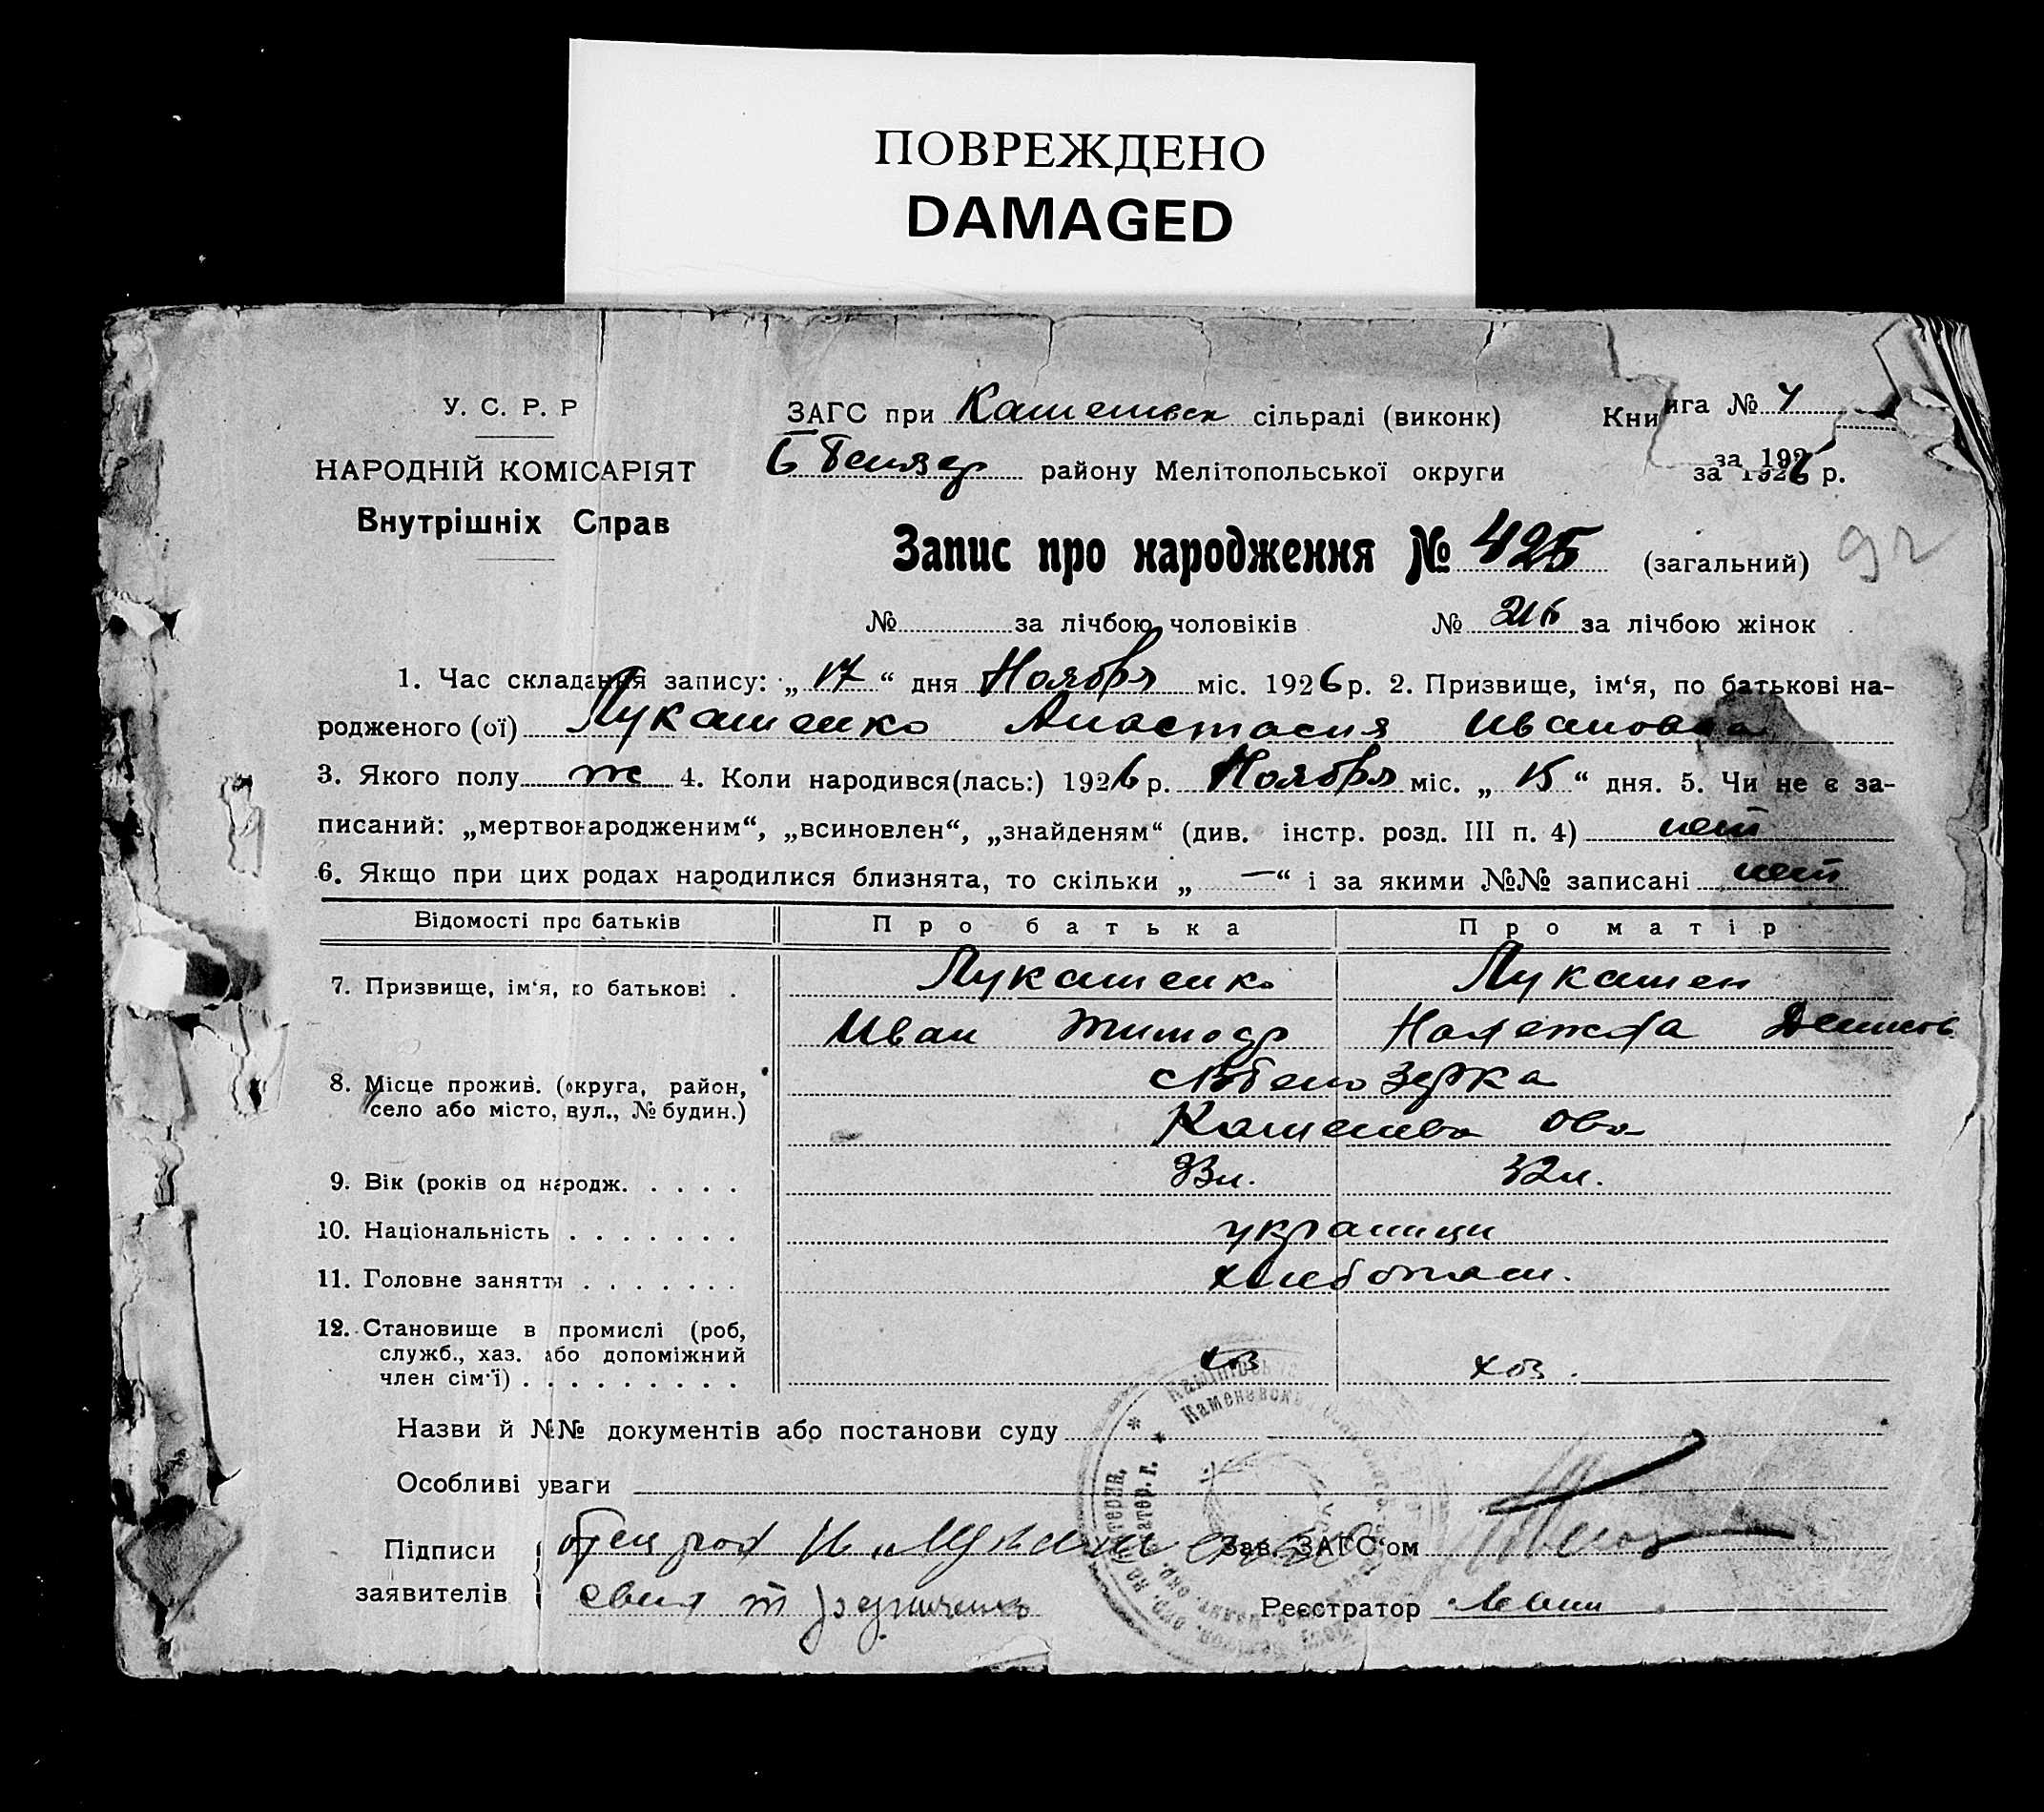 ПОВРЕЖДЕНО
DAMAGED
У. С. Р. Р
ЗАГС при Каменск сільраді (виконк)
Книга № 4
НАРОДНІЙ КОМІСАРІЯТ
району Мелітопольської округи
за 1926 р.
Внутрішніх Справ
Запис про народження № 425 (загальний)
92
№ за лічбою чоловіків № 216 за лічбою жінок
1. Час складання запису: „17“ дня Ноября міс. 1926 р. 2. Призвище, ім‘я, по батькові на-
родженого (ої) Лукашенко Анастасия Ивановна
3. Якого полу ж 4. Коли народився(лась:) 1926 р. Ноября міс. „15“ дня. 5. Чи не є за-
писаний: „мертвонародженим“, „всиновлен“, „знайденям“ (див. інстр. розд. III п. 4) нет
6. Якщо при цих родах народилися близнята, то скільки „—“ і за якими №№ записані нет
Відомості про батьків Про батька Про матір
7. Призвище, ім‘я, по батькові . Лукашенко Лукашен
Иван Тимоф Надежда Денисов
8. Місце прожив. (округа, район,
село або місто, вул., № будин.)
9. Вік (років од народж. . . . . 33л. 32л.
10. Національність . . . . . . . украинци
11. Головне заняття . . . . . . . хлебопаш.
12. Становище в промислі (роб,
служб., хаз. або допоміжний
член сім‘ї) . . . . . . . . . хоз хоз.
Назви й №№ документів або постанови суду
Особливі уваги
Підписи
заявителів
отец
Зав. ЗАГС‘ом
Реєстратор